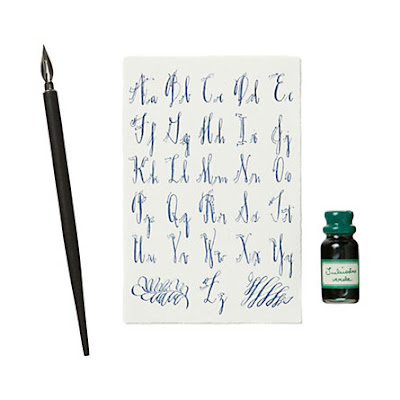 Aa Bb Cc Dd Ee
Ff Gg Hh Ii Jj
Kk Ll Mm Nn Oo
Pp Qq Rr Ss Tt
Uu Vv Ww Xx Yy
Zz
Inchiostro
verde